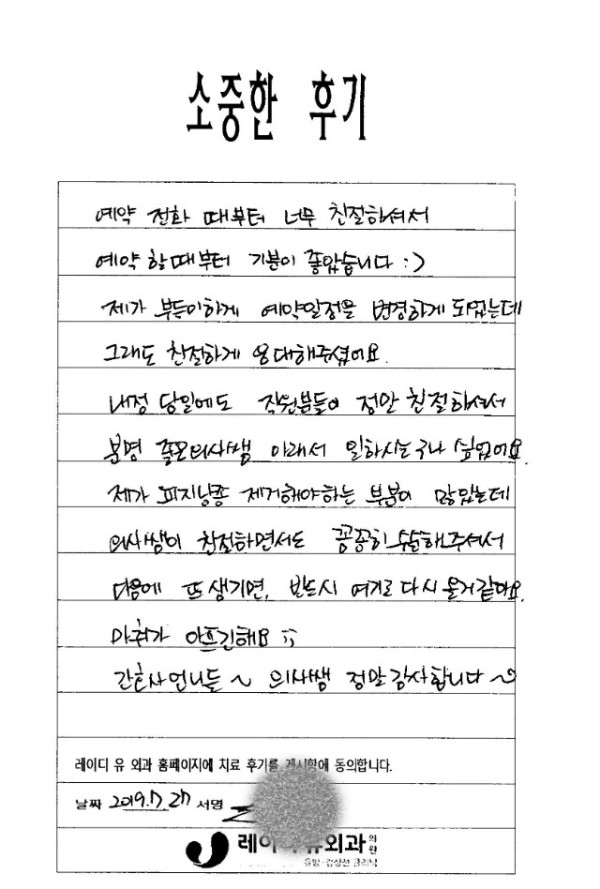 소중한 후기
예약 전화 때부터 너무 친절하셔서
예약 할때부터 기분이 좋았습니다 :)
제가 부득이하게 예약일정을 변경하게 되었는데
그래도 친절하게 응대해주셨어요.
내정 당일에도 직원분들이 정말 친절하셔서
분명 좋은의사쌤 아래서 일하시는구나 싶었어요.
제가 피지낭종 제거해야하는 부분이 많았는데
의사쌤이 친절하면서도 꼼꼼히 수술해주셔서
다음에 또 생기면, 반드시 여기로 다시 올거같아요.
마취가 아프긴해요 ;;
간호사언니들~ 의사쌤 정말감사합니다~
레이디 유 외과 홈페이지에 치료 후기를 게시함에 동의합니다.
날짜 2019.7.27 서명
레이디유외과의원
유방·갑상선 클리닉